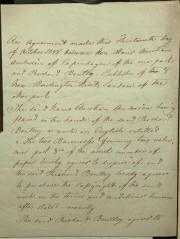 An Agreement made this Thirteenth day
of October 1847 between Mr Hans Christian
Andersen of Copenhagen of the one part
and Richard Bentley Publisher of
New Burlington Street London of the
other part
The said Hans Christian Andersen having
placed in the hands of the said Richard
Bentley a work in English entitled
The Two Baronesses forming two vols,
and of the usual number of
pages hereby agrees to dispose of and
the said Richard Bentley hereby agrees
to purchase the Copyright of the said
work on the terms and conditions herein
after stated namely
The said Richard Bentley agrees to